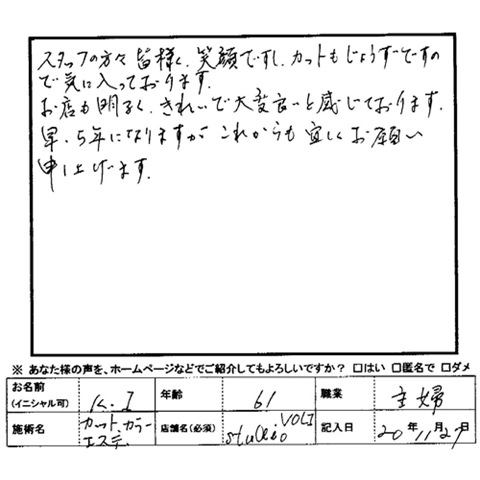 スタッフの方々 皆様、笑顔ですし、カットもじょうずですの
で気に入っております。
お店も明るく、きれいで大変良いと感じております。
早、5年になりますが これからも 宜しくお願い
申し上げます。
※ あなた様の声を、ホームページなどでご紹介してもよろしいですか？ □はい □匿名で □ダメ
お名前 (イニシャル可) K.I 年齢 61 職業 主婦
施術名 カット、カラー エステ 店舗名(必須) studio VOLI 記入日 20年11月27日